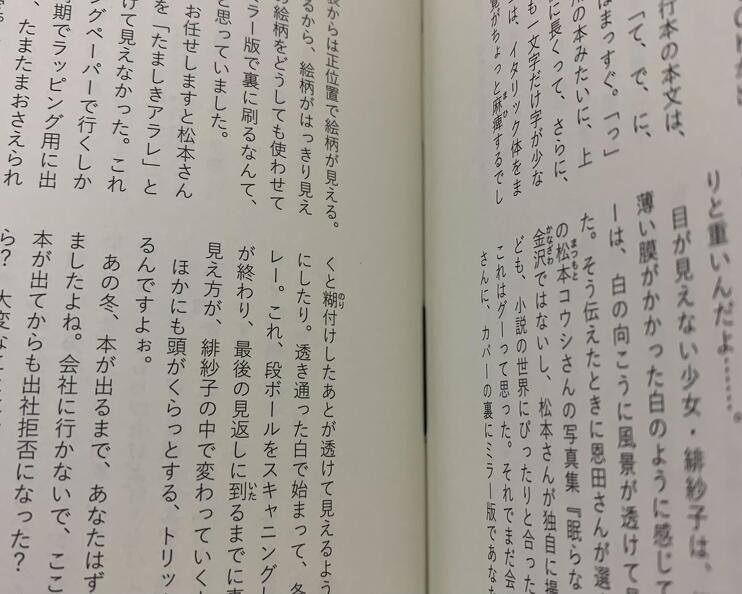 行本の本文は、
「て、で、に、
はまっすぐ。「っ」
の本みたいに、上
に長くって、さらに、
も一文字だけ字が少な
は、イタリック体をま
覚がちょっと麻痺するでし
りと重いんだよ……。
目が見えない少女・緋紗子は、
薄い膜がかかった白のように感じて
ーは、白の向こうに風景が透けて見
た。そう伝えたときに恩田さんが選
の松本コウシさんの写真集『眠らな
金沢ではないし、松本さんが独自に撮
ども、小説の世界にぴったりと合った
これはグーって思った。それでまだ会
さんに、カバーの裏にミラー版であなた
からは正位置で絵柄が見える。
るから、絵柄がはっきり見え
の絵柄をどうしても使わせて
ミラー版で裏に刷るなんて、
と思っていました。
お任せしますと松本さん
を「たましきアラレ」と
けて見えなかった。これ
ングペーパーで行くしか
期でラッピング用に出
、たまたまおさえられ
くと糊付けしたあとが透けて見えるよう
にしたり。透き通った白で始まって、各
レー。これ、段ボールをスキャニングし
が終わり、最後の見返しに到るまでに
見え方が、緋紗子の中で変わっていく
ほかにも頭がくらっとする、トリッ
るんですよぉ。
あの冬、本が出るまで、あなたはず
ましたよね。会社に行かないで、ここ
本が出てからも出社拒否になった？
ら？ 大変なこと